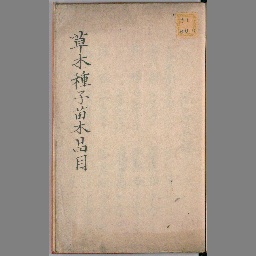 草木種子苗木品目